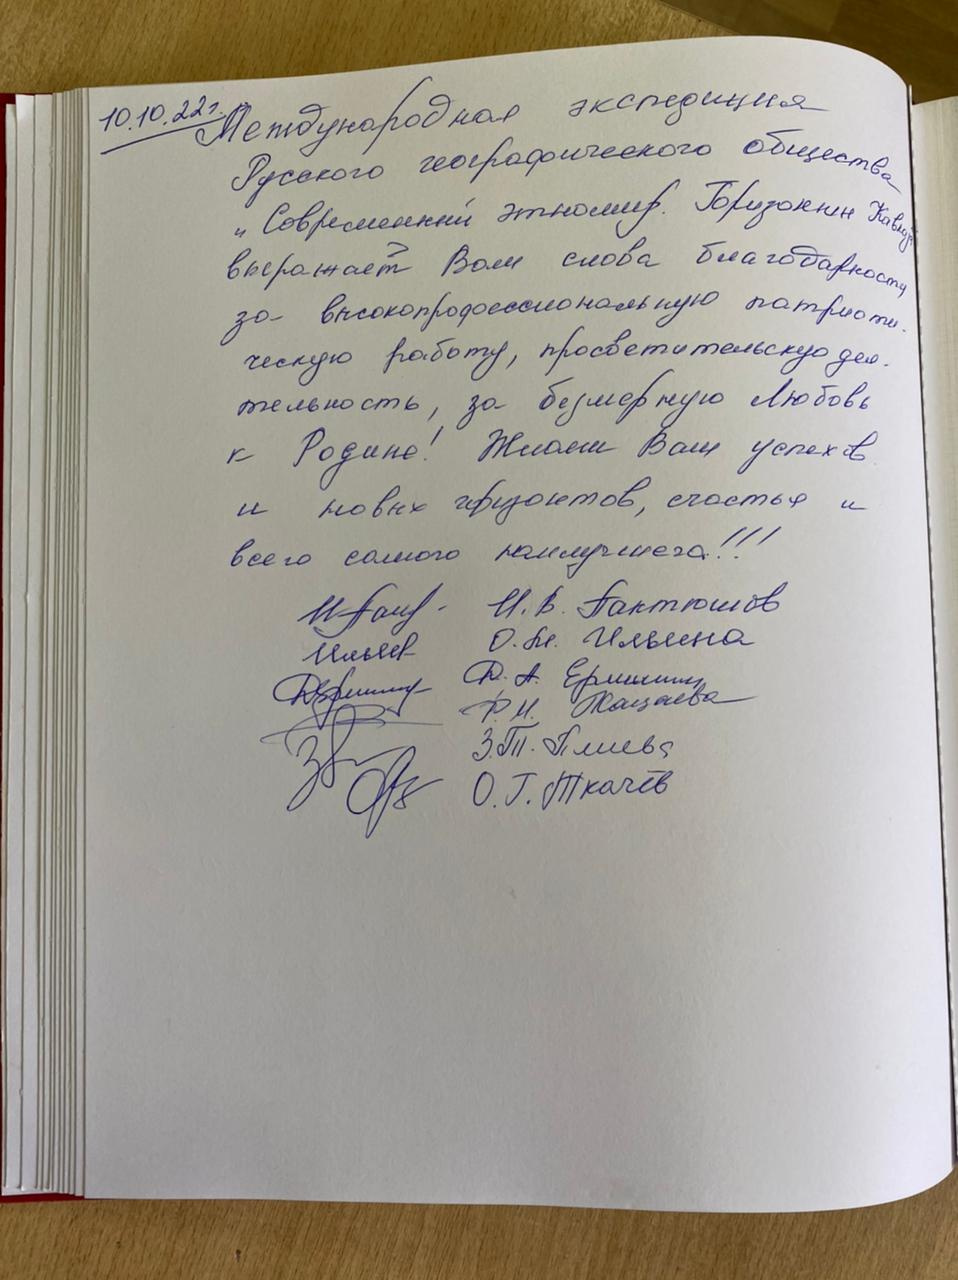 10.10.22г. Международная экспедиция
Русского географического общества
„Современный этномир. Горизонты Кавказа
выражает Вам слова благодарности
за высокопрофессиональную патриоти-
ческую работу, просветительскую дея-
тельность, за безмерную Любовь
к Родине! Желаем Вам успехов
и новых горизонтов, счастья и
всего самого наилучшего!!!
И.В. Пантюшов
О.М. Ильина
Д.А. Ермишин
Р.И. Кацаева
З.Т. Плиева
О.Г. Ткачёв